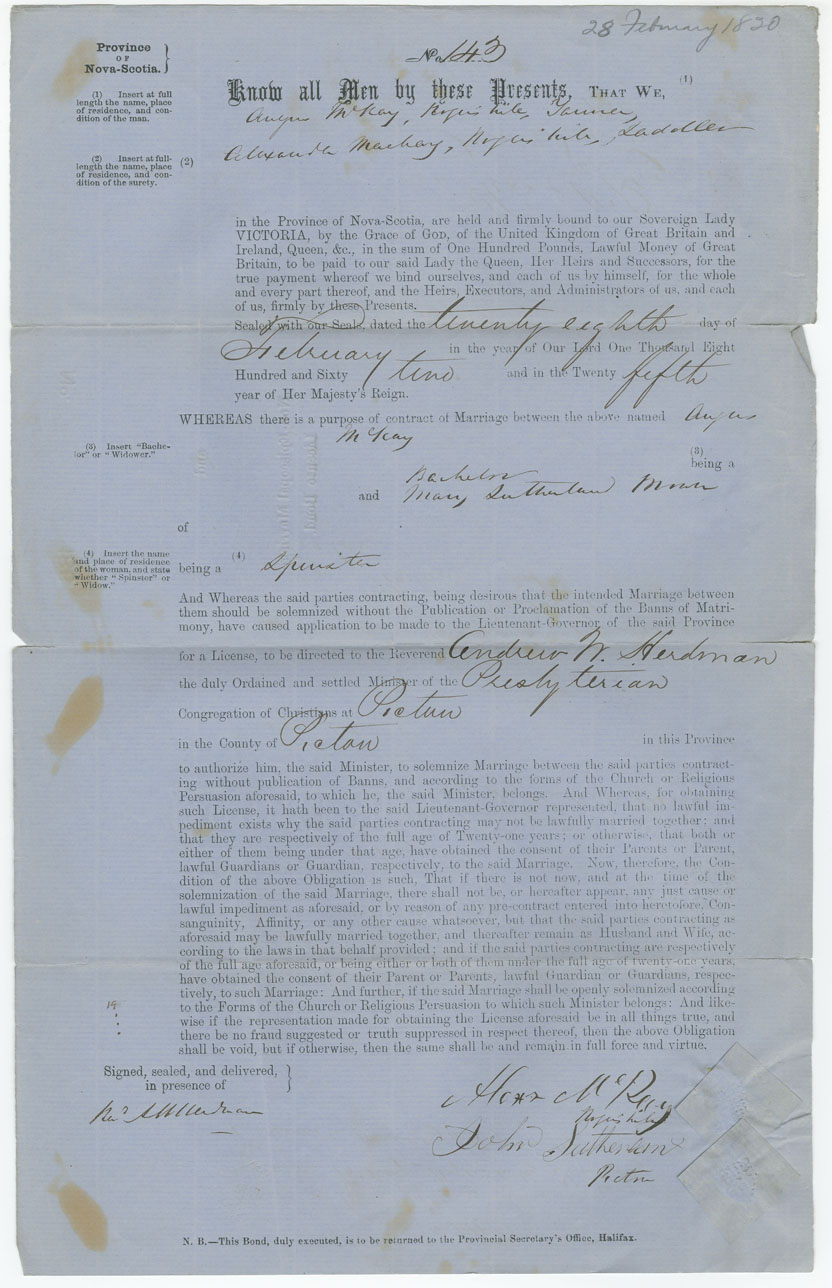 28 February 1830
Province
OF
Nova-Scotia.
No. 143
Know all Men by these Presents, THAT WE, (1)
(1) Insert at full
length the name, place
of residence, and con-
dition of the man.
Angus McKay, Rogers hill, Tanner,
Alexander Mackay, Rogers hill, Saddler
(2) Insert at full-
length the name, place
of residence, and con-
dition of the surety.
(2)
in the Province of Nova-Scotia, are held and firmly bound to our Sovereign Lady
VICTORIA, by the Grace of GOD, of the United Kingdom of Great Britain and
Ireland, Queen, &c., in the sum of One Hundred Pounds, Lawful Money of Great
Britain, to be paid to our said Lady the Queen, Her Heirs and Successors, for the
true payment whereof we bind ourselves, and each of us by himself, for the whole
and every part thereof, and the Heirs, Executors, and Administrators of us, and each
of us, firmly by these Presents.
Sealed with our Seals, dated the twenty eighth day of
February in the year of Our Lord One Thousand Eight
Hundred and Sixty two and in the Twenty fifth
year of Her Majesty's Reign.
WHEREAS there is a purpose of contract of Marriage between the above named Angus
McKay
(3) Insert "Bache-
lor" or "Widower."
(3)
being a
Bachelor
and Mary Sutherland
of
(4) Insert the name
and place of residence
of the woman, and state
whether "Spinster" or
"Widow."
being a (4) Spinster
And Whereas the said parties contracting, being desirous that the intended Marriage between
them should be solemnized without the Publication or Proclamation of the Banns of Matri-
mony, have caused application to be made to the Lieutenant-Governor of the said Province
for a License, to be directed to the Reverend Andrew W. Herdman
the duly Ordained and settled Minister of the Presbyterian
Congregation of Christians at Pictou
in the County of Pictou in this Province
to authorize him, the said Minister, to solemnize Marriage between the said parties contract-
ing without publication of Banns, and according to the forms of the Church or Religious
Persuasion aforesaid, to which he, the said Minister, belongs. And Whereas, for obtaining
such License, it hath been to the said Lieutenant-Governor represented, that no lawful im-
pediment exists why the said parties contracting may not be lawfully married together; and
that they are respectively of the full age of Twenty-one years; or otherwise, that both or
either of them being under that age, have obtained the consent of their Parents or Parent,
lawful Guardians or Guardian, respectively, to the said Marriage. Now, therefore, the Con-
dition of the above Obligation is such, That if there is not now, and at the time of the
solemnization of the said Marriage, there shall not be, or hereafter appear, any just cause or
lawful impediment as aforesaid, or by reason of any pre-contract entered into heretofore, Con-
sanguinity, Affinity, or any other cause whatsoever, but that the said parties contracting as
aforesaid may be lawfully married together, and thereafter remain as Husband and Wife, ac-
cording to the laws in that behalf provided; and if the said parties contracting are respectively
of the full age aforesaid, or being either or both of them under the full age of twenty-one years,
have obtained the consent of their Parent or Parents, lawful Guardian or Guardians, respec-
tively, to such Marriage: And further, if the said Marriage shall be openly solemnized according
to the Forms of the Church or Religious Persuasion to which such Minister belongs: And like-
wise if the representation made for obtaining the License aforesaid be in all things true, and
there be no fraud suggested or truth suppressed in respect thereof, then the above Obligation
shall be void, but if otherwise, then the same shall and remain in full force and virtue.
Signed, sealed, and delivered,
in presence of
Revd A W Herdman
Alexr McKay
Rogers hill
John Sutherland
Pictou
N. B.—This Bond, duly executed, is to be returned to the Provincial Secretary's Office, Halifax.